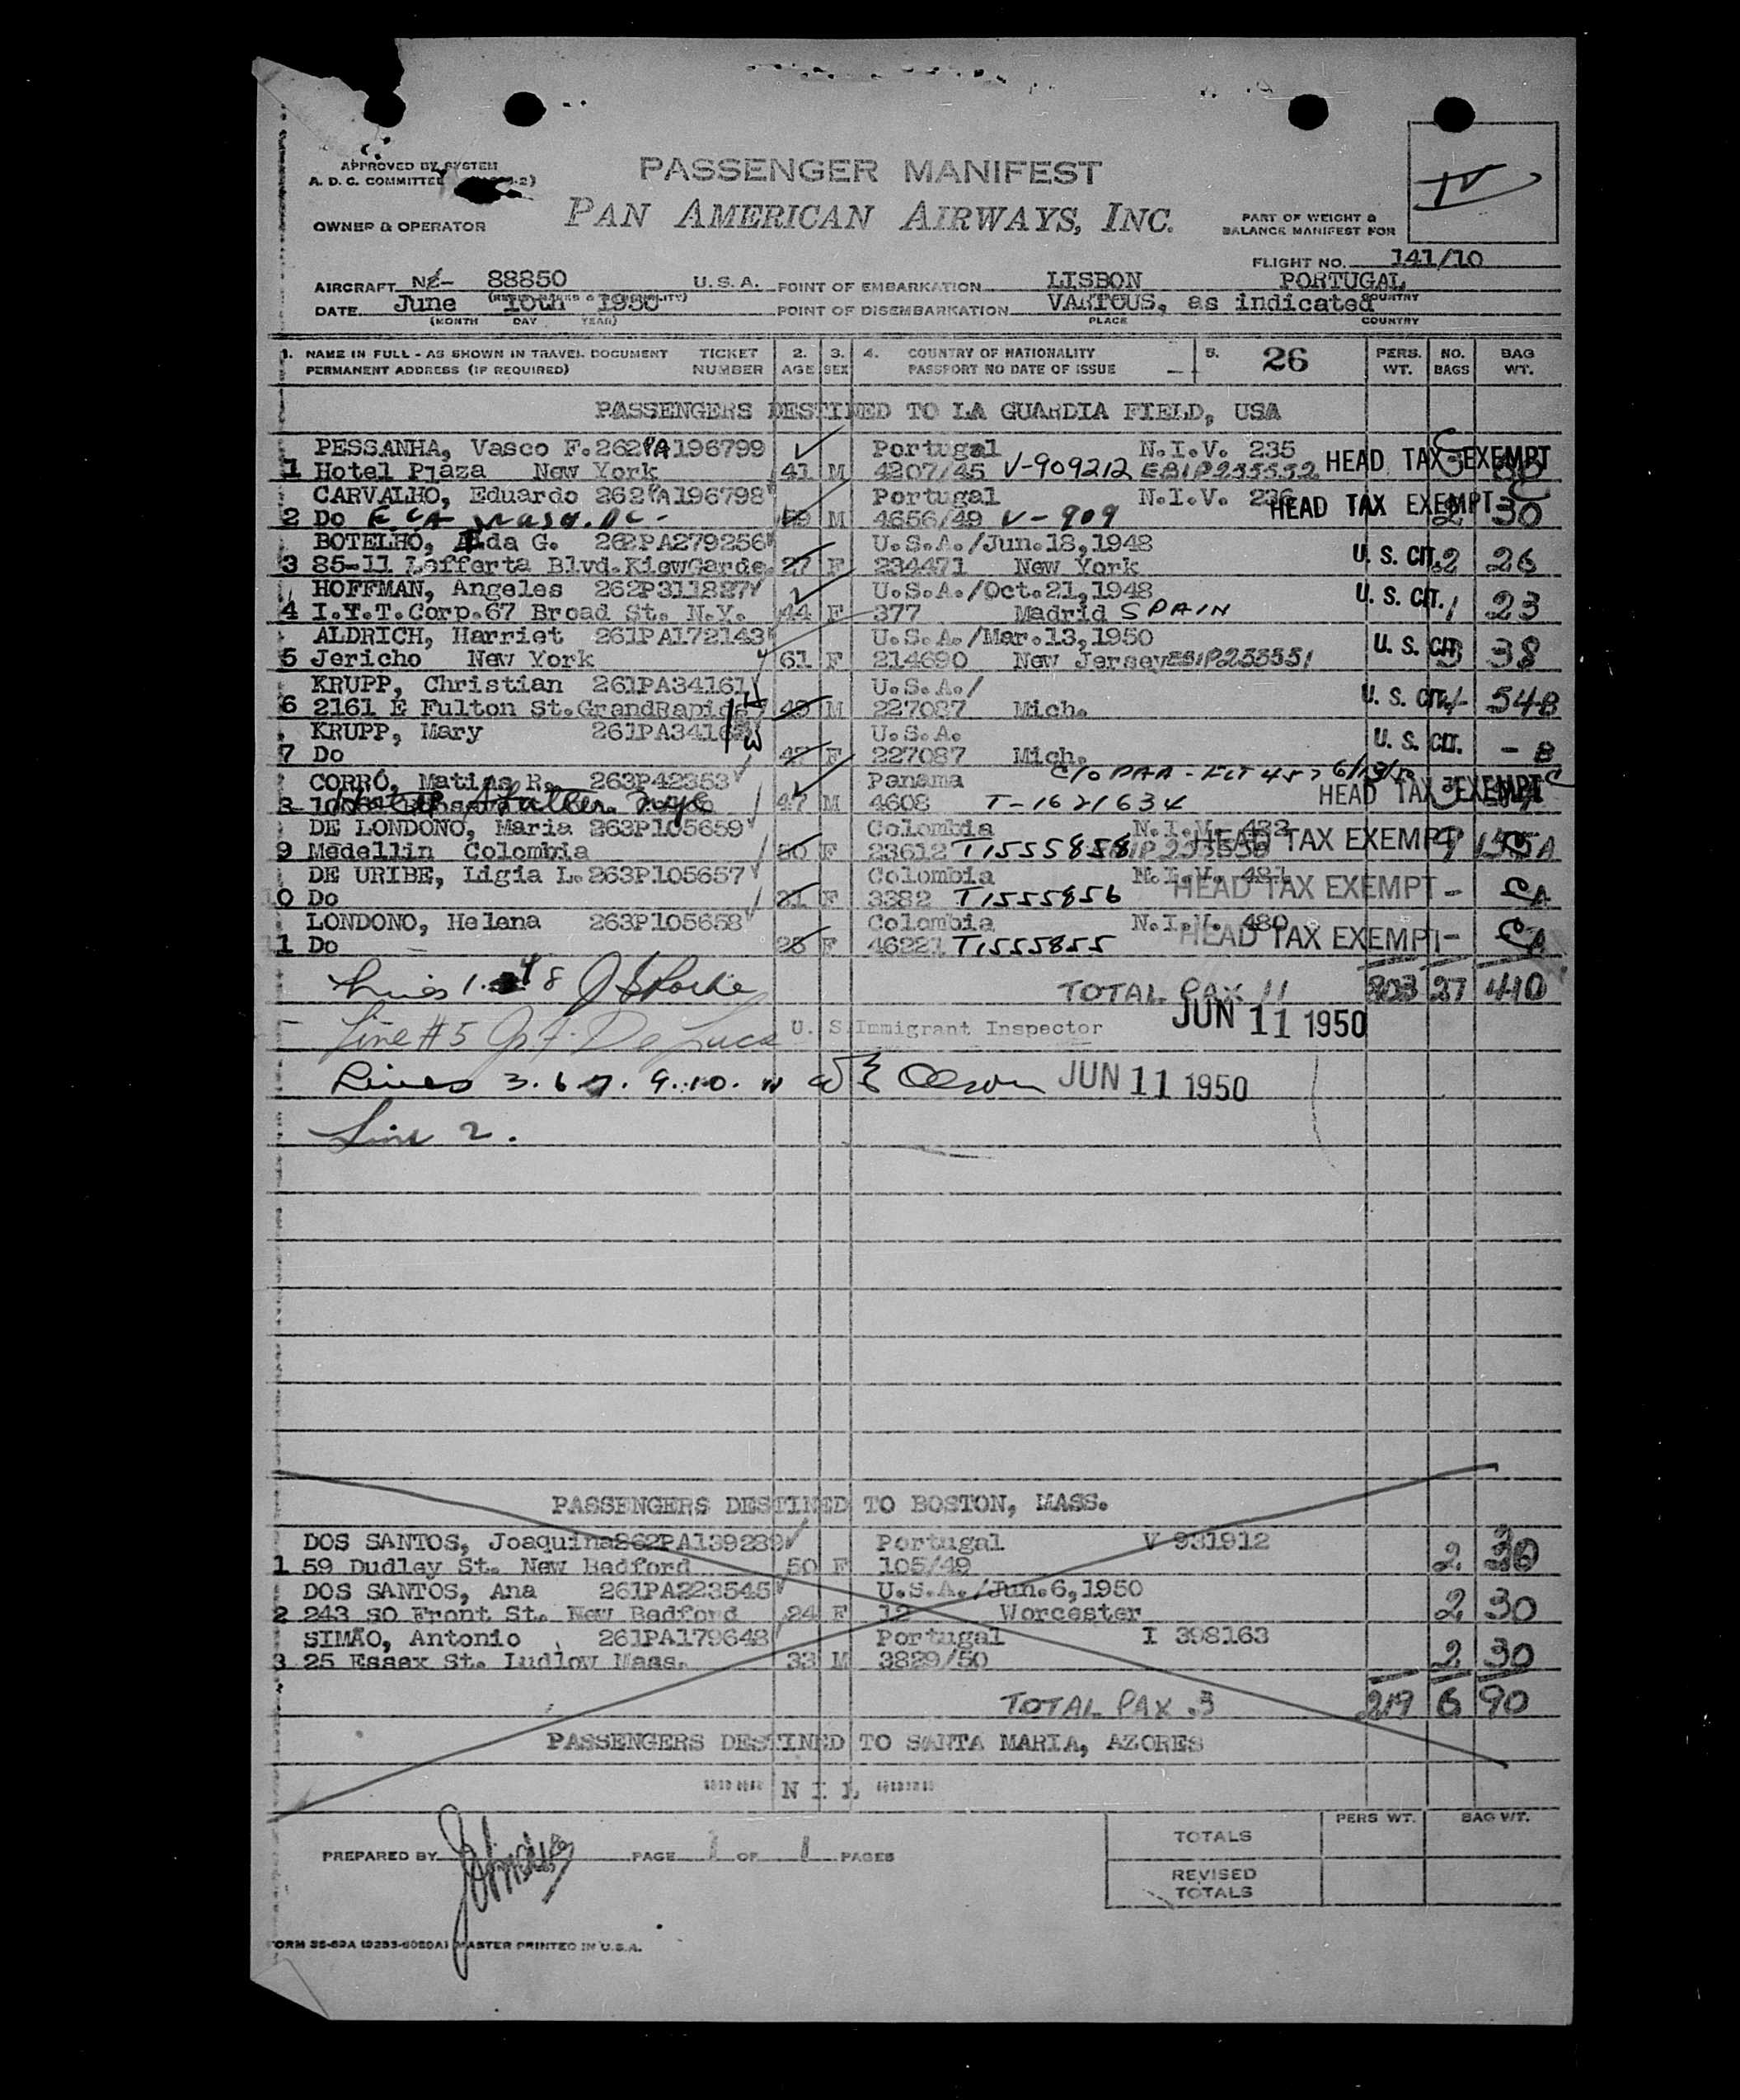 APPROVED BY SYSTEM
A. D. C. COMMITTEE
PASSENGER MANIFEST
PAN AMERICAN AIRWAYS, INC.
OWNER & OPERATOR
PART OF WEIGHT &
BALANCE MANIFEST FOR
IV
FLIGHT NO. 141/10
AIRCRAFT 88850 U.S.A. POINT OF EMBARKATION LISBON PORTUGAL
DATE June 10th 1950 POINT OF DISEMBARKATION VARIOUS, as indicated
(MONTH DAY YEAR) PLACE COUNTRY
1. NAME IN FULL - AS SHOWN IN TRAVEL DOCUMENT TICKET 2. 3. 4. COUNTRY OF NATIONALITY 5. 26 PERS. NO. BAG
PERMANENT ADDRESS (IF REQUIRED) NUMBER AGE SEX PASSPORT NO DATE OF ISSUE WT. BAGS WT.
PASSENGERS DESTINED TO LA GUARDIA FIELD, USA
PESSANHA, Vasco F. 262PA196799 Portugal N.I.V. 235
1 Hotel Plaza New York 41 M 4207/45 V-909212 HEAD TAX EXEMPT
CARVALHO, Eduardo 262PA196798 Portugal N.I.V. 236
2 Do M 4656/49 V-909 HEAD TAX EXEMPT 2 30
BOTELHO, Alda G. 262PA279256 U.S.A./Jun.18,1948
3 85-11 Lefferts Blvd.KiewGarde. 27 F 234471 New York U. S. CIT. 2 26
HOFFMAN, Angeles 262P311827 U.S.A./Oct.21,1948
4 I.T.T.Corp.67 Broad St. N.Y. 44 F 377 Madrid SPAIN U. S. CIT. 1 23
ALDRICH, Harriet 261PA172143 U.S.A./Mar.13,1950
5 Jericho New York 61 F 214690 New Jersey U. S. CIT. 3 38
KRUPP, Christian 261PA34161 U.S.A./
6 2161 E Fulton St.GrandRapids 49 M 227087 Mich. U. S. CIT. 4 54B
KRUPP, Mary U.S.A.
7 Do 47 F 227087 Mich. U. S. CIT. - B
CORRÓ, Matias R. 263P42353 Panama C/O PAA - FLT 457
8 47 M 4608 T-1621634 HEAD TAX EXEMPT
DE LONDONO, Maria 263P105659 Colombia N.I.V. 482
9 Medellin Colombia 50 F 23612 T1555858 HEAD TAX EXEMPT 9 155A
DE URIBE, Ligia L. 263P105657 Colombia N.I.V. 481
0 Do 31 F 3382 T1555856 HEAD TAX EXEMPT - A
LONDONO, Helena 263P105658 Colombia N.I.V. 480
1 Do 25 F 46221 T1555855 HEAD TAX EXEMPT - A
Lines 1. 4 8 TOTAL PAX 11 803 27 440
Line #5 De Luca U. S. Immigrant Inspector JUN 11 1950
Lines 3. 6 7. 9. 10. 11 W E Olson JUN 11 1950
Line 2.
PASSENGERS DESTINED TO BOSTON, MASS.
DOS SANTOS, Joaquina 262PA139289 Portugal V 931912
1 59 Dudley St. New Bedford 50 F 105/49 2 30
DOS SANTOS, Ana 261PA223545 U.S.A./Jun.6,1950
2 243 SO Front St. New Bedford 24 F 12 Worcester 2 30
SIMÃO, Antonio 261PA179648 Portugal I 398163
3 25 Essex St. Ludlow Mass. 33 M 3829/50 2 30
TOTAL PAX 3 219 6 90
PASSENGERS DESTINED TO SANTA MARIA, AZORES
N I L
PERS WT. BAG WT.
TOTALS
PREPARED BY PAGE 1 OF 1 PAGES
REVISED
TOTALS
FORM 35-62A (9253-6050A) MASTER PRINTED IN U.S.A.